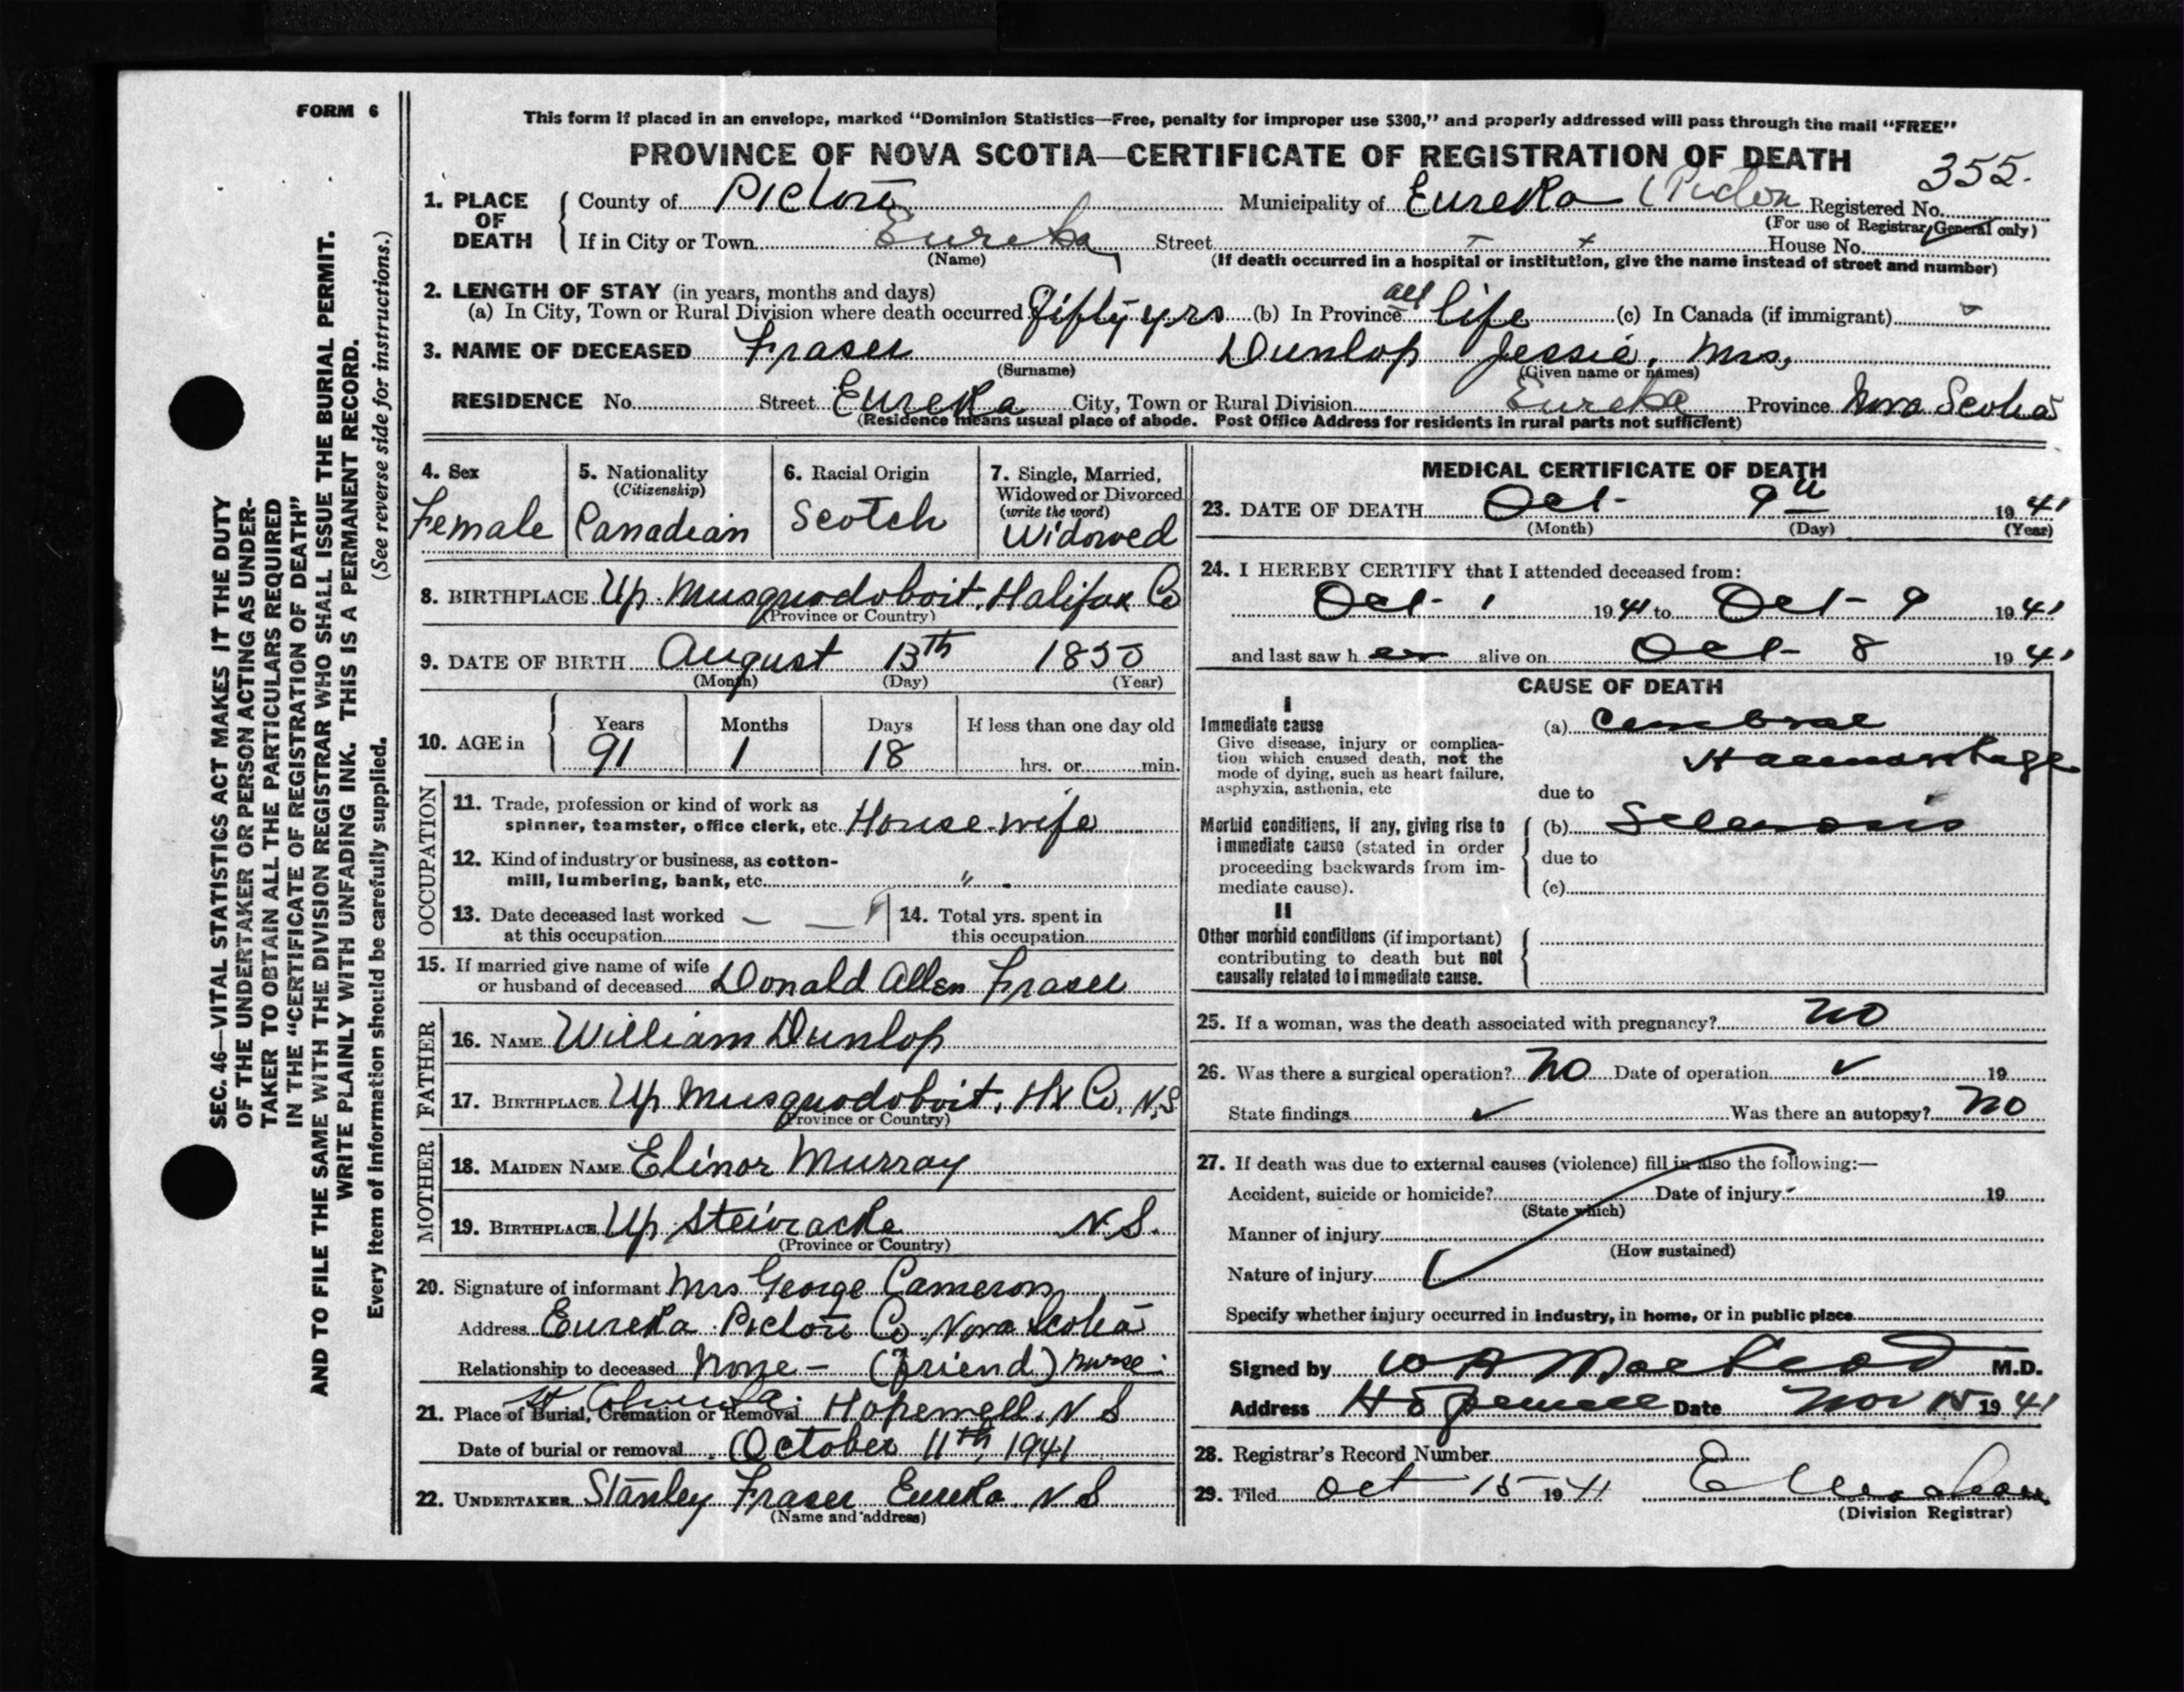 FORM 6
This form if placed in an envelope, marked "Dominion Statistics—Free, penalty for improper use $300," and properly addressed will pass through the mail "FREE"
PROVINCE OF NOVA SCOTIA—CERTIFICATE OF REGISTRATION OF DEATH
355.
1. PLACE OF DEATH
County of Pictou Municipality of Eureka (Pictou Registered No.
(For use of Registrar General only)
If in City or Town Eureka Street House No.
(Name) (If death occurred in a hospital or institution, give the name instead of street and number)
2. LENGTH OF STAY (in years, months and days)
(a) In City, Town or Rural Division where death occurred Fifty yrs (b) In Province all life (c) In Canada (if immigrant)
3. NAME OF DECEASED Fraser Dunlop Jessie, Mrs,
(Surname) (Given name or names)
RESIDENCE No. Street Eureka City, Town or Rural Division Eureka Province Nova Scotia
(Residence means usual place of abode. Post Office Address for residents in rural parts not sufficient)
4. Sex
Female
5. Nationality
(Citizenship)
Canadian
6. Racial Origin
Scotch
7. Single, Married,
Widowed or Divorced
(write the word)
Widowed
8. BIRTHPLACE Up. Musquodoboit, Halifax Co
(Province or Country)
9. DATE OF BIRTH August 13th 1850
(Month) (Day) (Year)
10. AGE in
Years Months Days If less than one day old
91 1 18 hrs. or min.
OCCUPATION
11. Trade, profession or kind of work as
spinner, teamster, office clerk, etc. House-wife
12. Kind of industry or business, as cotton-
mill, lumbering, bank, etc. "
13. Date deceased last worked
at this occupation
14. Total yrs. spent in
this occupation
15. If married give name of wife
or husband of deceased Donald Allen Fraser
FATHER
16. NAME William Dunlop
17. BIRTHPLACE Up Musquodoboit, Hx Co, N.S
(Province or Country)
MOTHER
18. MAIDEN NAME Elinor Murray
19. BIRTHPLACE Up Steiwacke N.S.
(Province or Country)
20. Signature of informant Mrs George Cameron
Address Eureka Pictou Co. Nova Scotia
Relationship to deceased None - (friend) nurse
21. Place of Burial, Cremation or Removal Hopewell. N S
Date of burial or removal October 11th, 1941
22. UNDERTAKER Stanley Fraser Eureka N S
(Name and address)
MEDICAL CERTIFICATE OF DEATH
23. DATE OF DEATH Oct 9th 1941
(Month) (Day) (Year)
24. I HEREBY CERTIFY that I attended deceased from:
Oct 1 1941 to Oct 9 1941
and last saw her alive on Oct 8 1941
CAUSE OF DEATH
I
Immediate cause
Give disease, injury or complica-
tion which caused death, not the
mode of dying, such as heart failure,
asphyxia, asthenia, etc
(a) Cerebral
Haemorrhage
due to
Morbid conditions, if any, giving rise to
immediate cause (stated in order
proceeding backwards from im-
mediate cause).
(b) Sclerosis
due to
(c)
II
Other morbid conditions (if important)
contributing to death but not
causally related to immediate cause.
25. If a woman, was the death associated with pregnancy? no
26. Was there a surgical operation? no Date of operation ✓ 19
State findings ✓ Was there an autopsy? no
27. If death was due to external causes (violence) fill in also the following:—
Accident, suicide or homicide? Date of injury 19
(State which)
Manner of injury
(How sustained)
Nature of injury
Specify whether injury occurred in industry, in home, or in public place
Signed by W A MacLeod M.D.
Address Hopewell Date Nov 15 1941
28. Registrar's Record Number
29. Filed Oct 15 1941
(Division Registrar)
SEC. 46—VITAL STATISTICS ACT MAKES IT THE DUTY
OF THE UNDERTAKER OR PERSON ACTING AS UNDER-
TAKER TO OBTAIN ALL THE PARTICULARS REQUIRED
IN THE "CERTIFICATE OF REGISTRATION OF DEATH"
AND TO FILE THE SAME WITH THE DIVISION REGISTRAR WHO SHALL ISSUE THE BURIAL PERMIT.
WRITE PLAINLY WITH UNFADING INK. THIS IS A PERMANENT RECORD.
Every item of information should be carefully supplied. (See reverse side for instructions.)